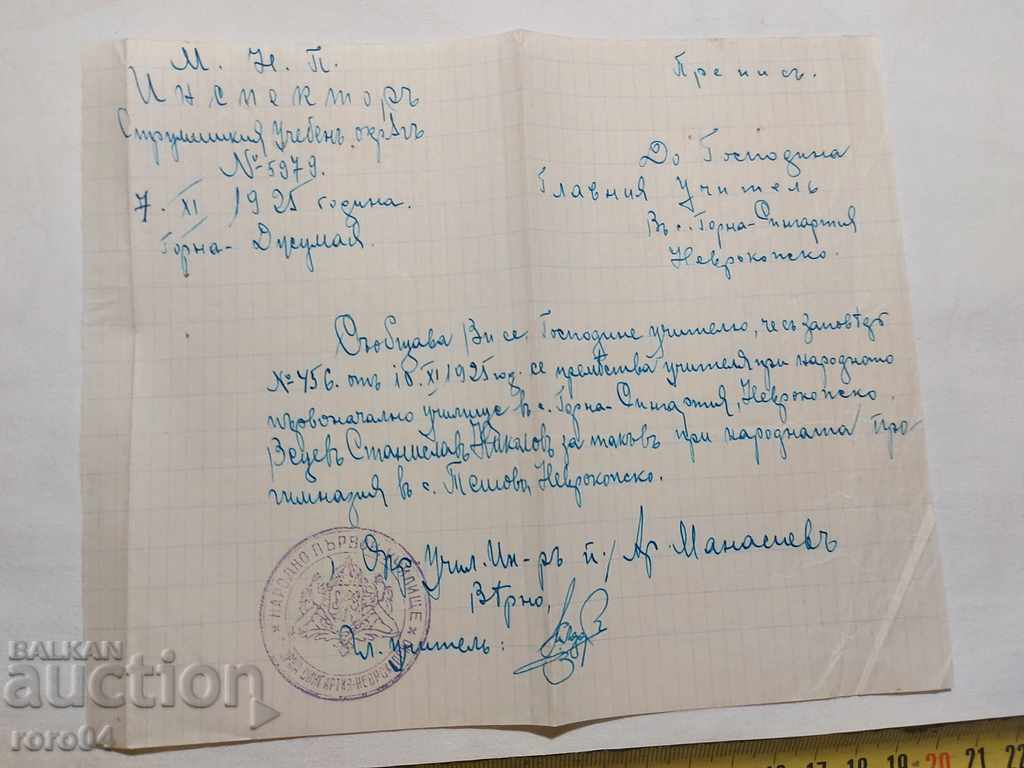 М. Н. П.
Инспекторъ
Струмишкия Учебенъ окрѫгъ
№ 5979.
7. XI 1925 година.
Горна-Джумая.
Преписъ.
До Господина
Главния Учитель
въ с. Горна-Сингартия
Неврокопско.
Съобщава Ви се, Господине учителю, че съ заповѣдь
№ 456. отъ 10. XI 1925 год. се премѣства учителя при народното
първоначално училище въ с. Горна-Сингартия, Неврокопско
Вецевъ Станиславъ Николовъ за такъвъ при народната про-
гимназия въ с. Тешово, Неврокопско.
Окр. Учил. Ин-ръ: п/ Ар. Манасиевъ
Вѣрно,
Гл. учитель:
НАРОДНО ПЪРВ. УЧИЛИЩЕ
СИНГАРТИЯ-НЕВРОК
BALKAN
auction
roro04
17 18 19 20 21 22